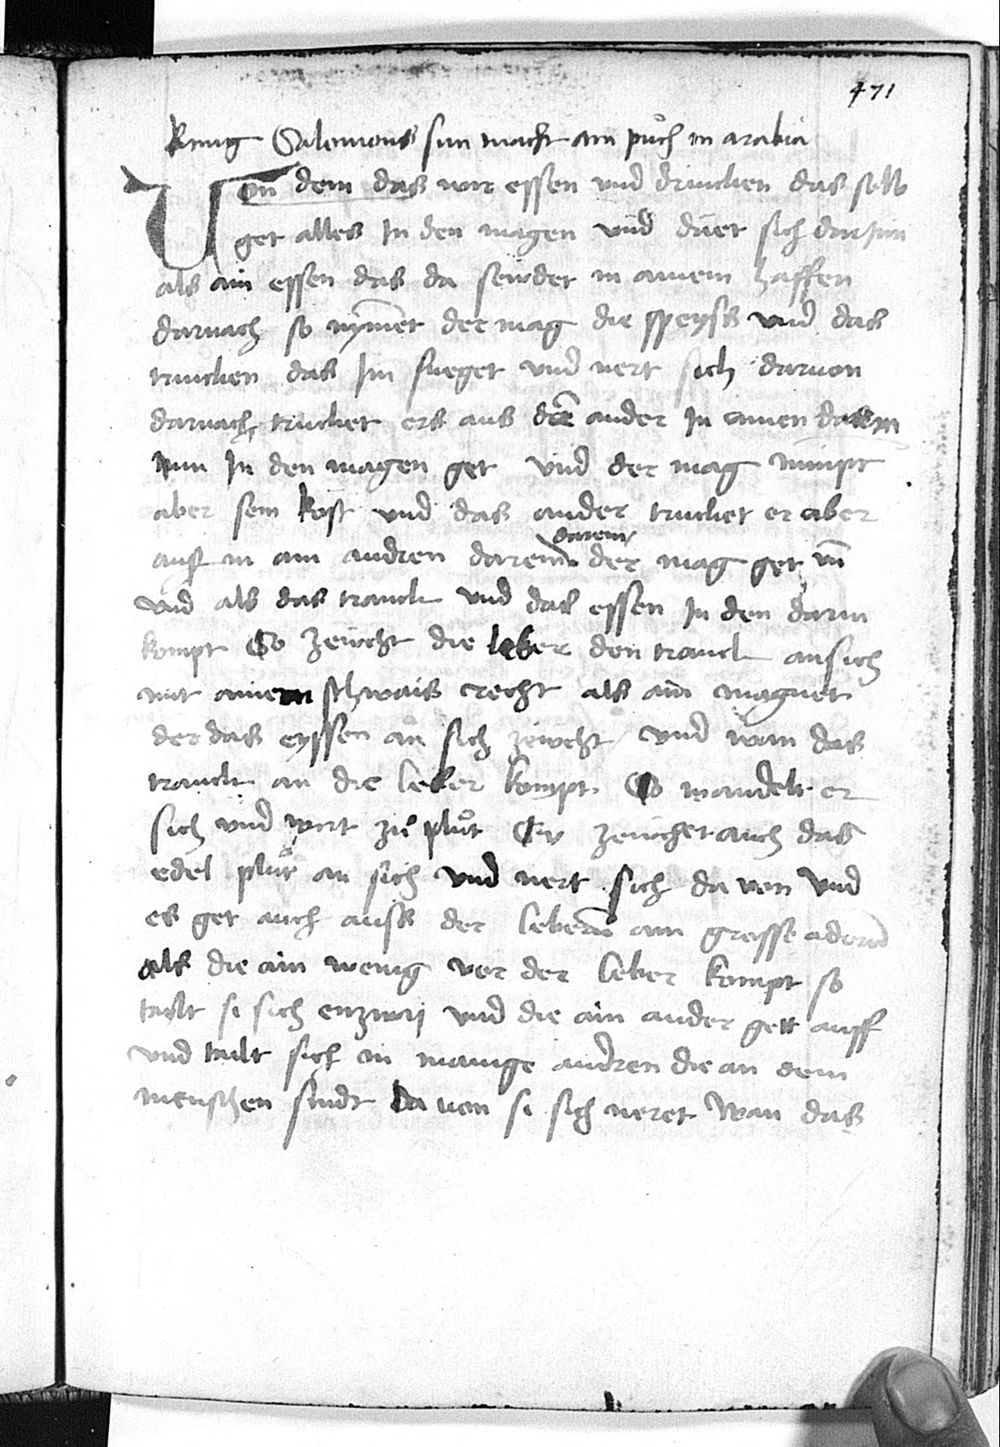 471
Kunig Salomons sun macht ain půch in arabia
Von dem das wir essen vnd drincken das selb
get alles In den magen vnd däet sich dar Inn
als ain essen das da seüdet in ainem haffen
darnach so nymet der mag die speyss vnd das
trincken das Im füeget vnd nert sich daruon
darnach trucket ers aus das ander In ainen darm
nun In den magen get vnd der mag nimpt
aber sein kost vnd das ander trucket er aber
auss in ain andren darem der mag get
darem
vnd als das tranck vnd das essen In den darm
kompt So zeücht die leber den tranck an sich
mit ainem schwais recht als ain magnet
der das eyssen an sich zeücht vnd wan das
tranck an die leber kompt So wandelt er
sich vnd wirt zů plůt Sy zeüchet auch das
edel plůt an sich vnd nert sich da von vnd
es get auch auss der leberen ain grosse aderen
als die ain wenig vor der leber kompt so
tailt si sich enzway vnd die ain ander gett auff
vnd tailt sich in mange andren die an dem
menschen sindt da von si sich neret Wan das